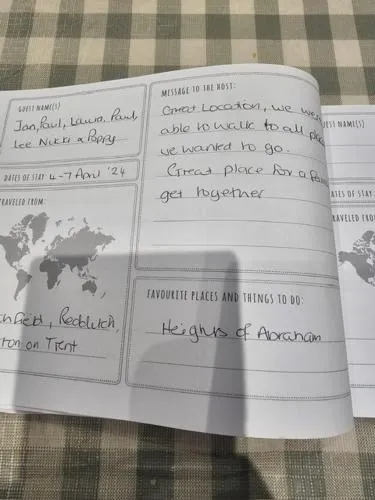 GUEST NAME(S)
Jan, Paul, Laura, Paul,
Lee Nikki & Poppy
DATES OF STAY 4-7 April '24
TRAVELED FROM:
Redditch,
on Trent
MESSAGE TO THE HOST:
Great Location, we were
able to walk to all
we wanted to go.
Great place for a
get together
FAVOURITE PLACES AND THINGS TO DO:
Heights of Abraham
UEST NAME(S)
ATES OF STAY
RAVELED FROM